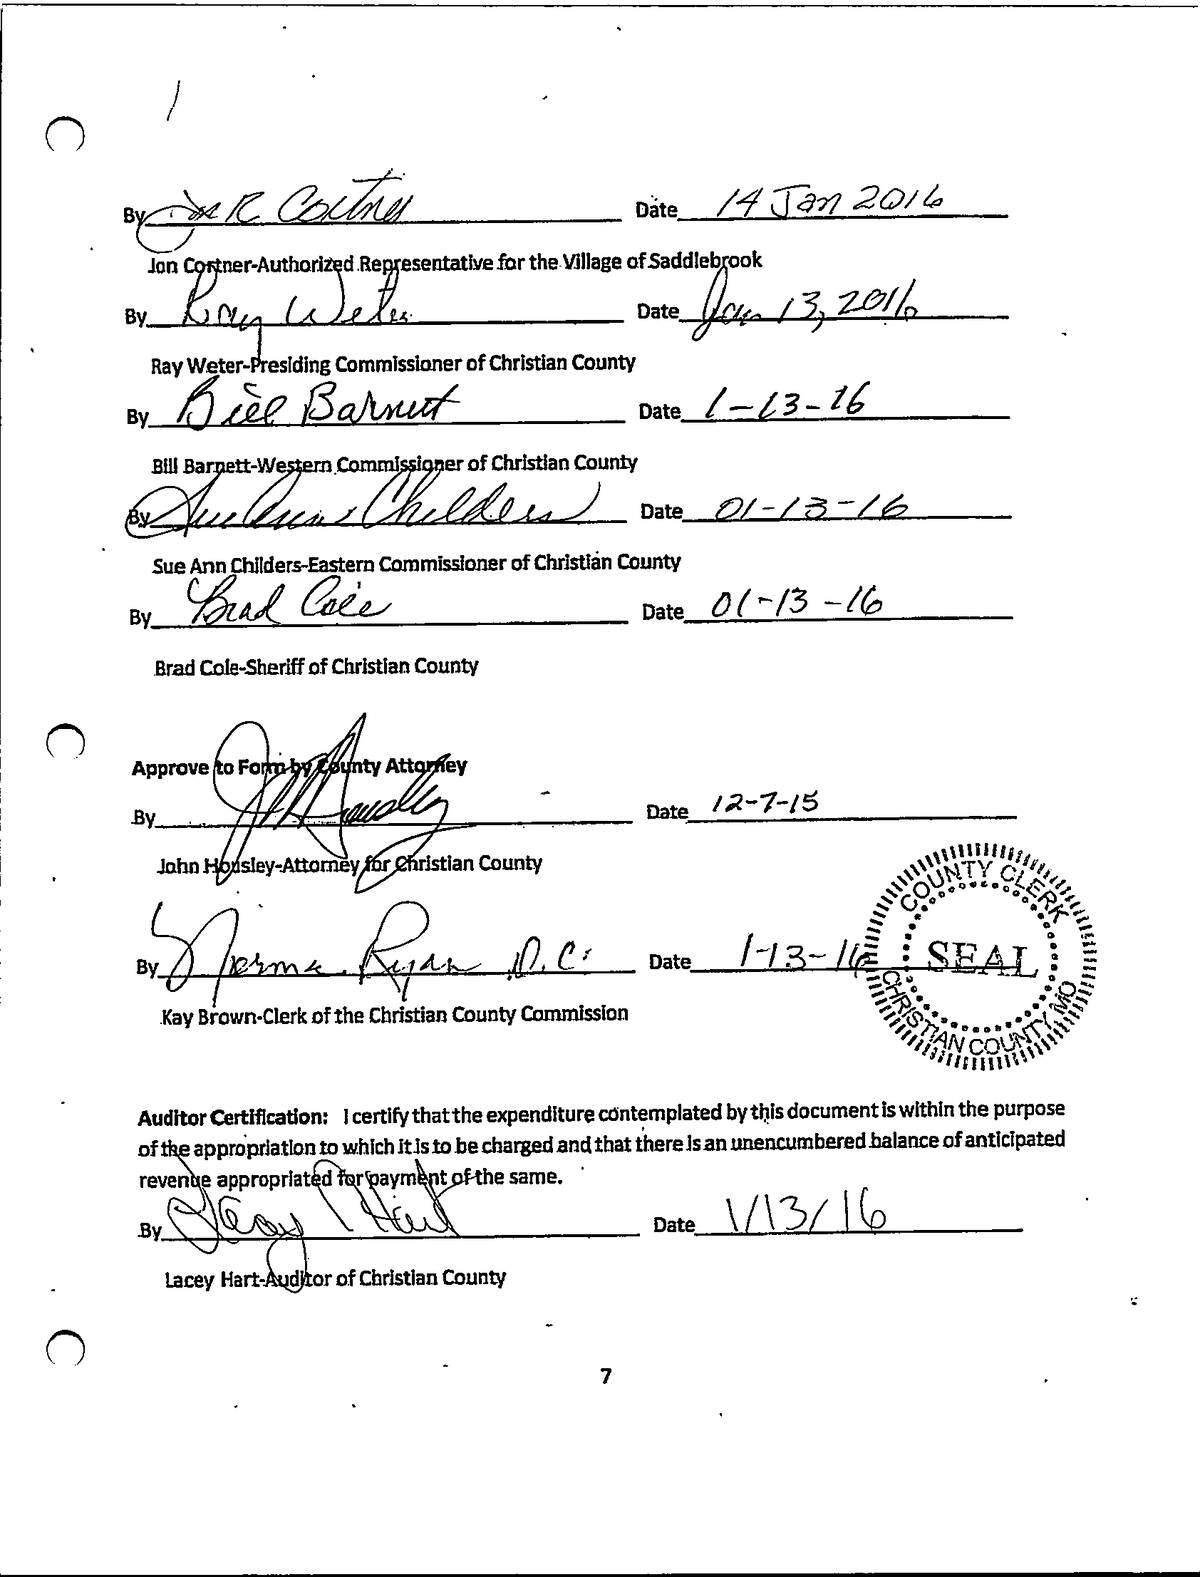 By Jon R Cortner Date 14 Jan 2016
Jon Cortner-Authorized Representative for the Village of Saddlebrook
By Ray Weter Date Jan 13, 2016
Ray Weter-Presiding Commissioner of Christian County
By Bill Barnett Date 1-13-16
Bill Barnett-Western Commissioner of Christian County
By Sue Ann Childers Date 01-13-16
Sue Ann Childers-Eastern Commissioner of Christian County
By Brad Cole Date 01-13-16
Brad Cole-Sheriff of Christian County
Approve to Form by County Attorney
By Date 12-7-15
John Housley-Attorney for Christian County
By Norma Ryan D.C. Date 1-13-16
Kay Brown-Clerk of the Christian County Commission
COUNTY CLERK
SEAL
CHRISTIAN COUNTY, MO
Auditor Certification: I certify that the expenditure contemplated by this document is within the purpose
of the appropriation to which it is to be charged and that there is an unencumbered balance of anticipated
revenue appropriated for payment of the same.
By Lacey Hart Date 1/13/16
Lacey Hart-Auditor of Christian County
7